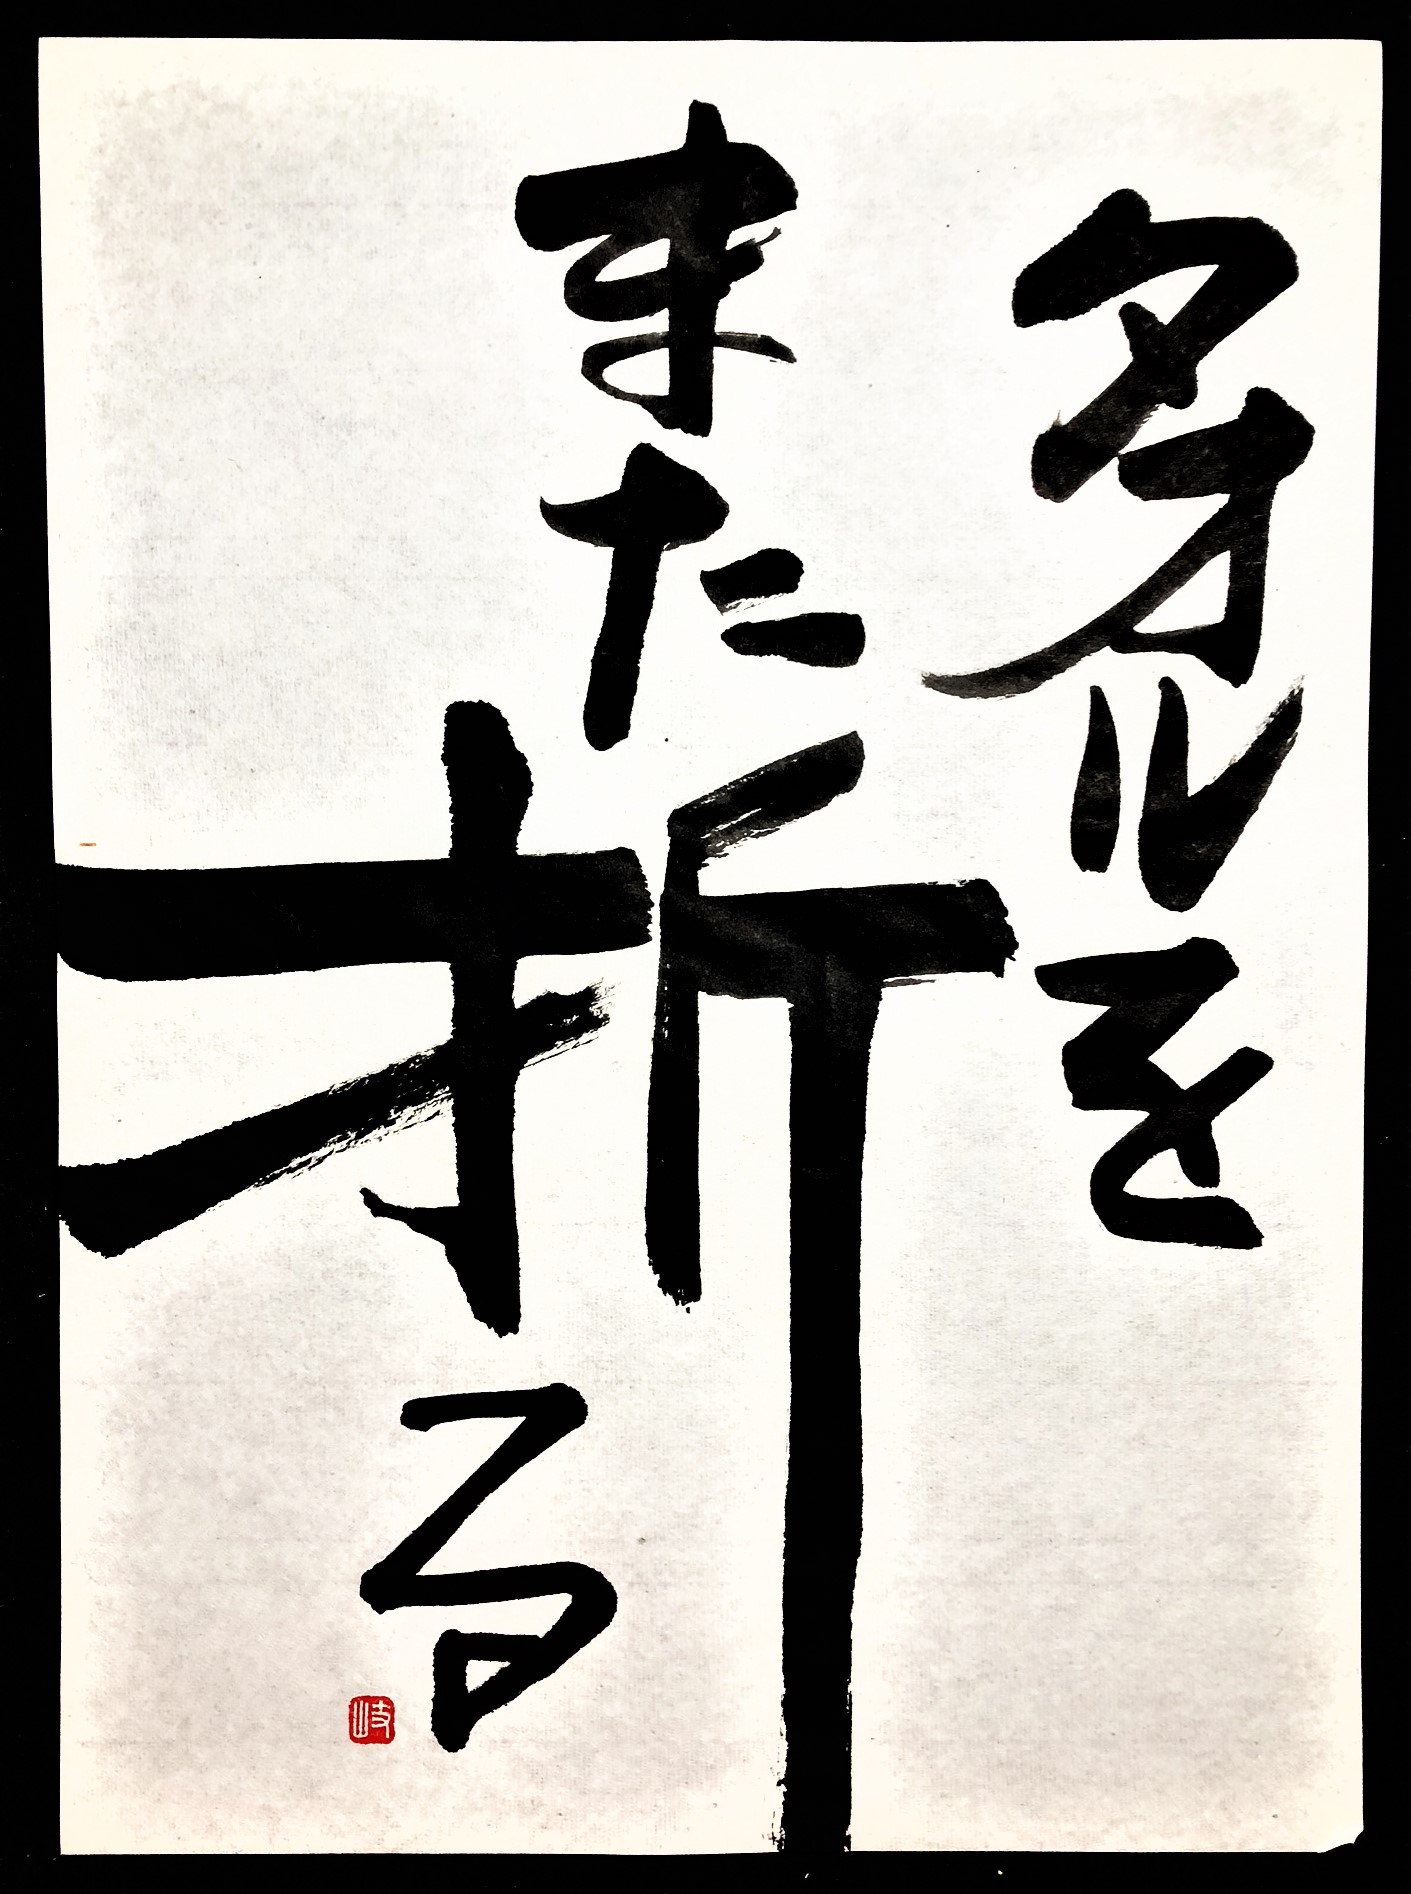 タオルを
また折る
岐